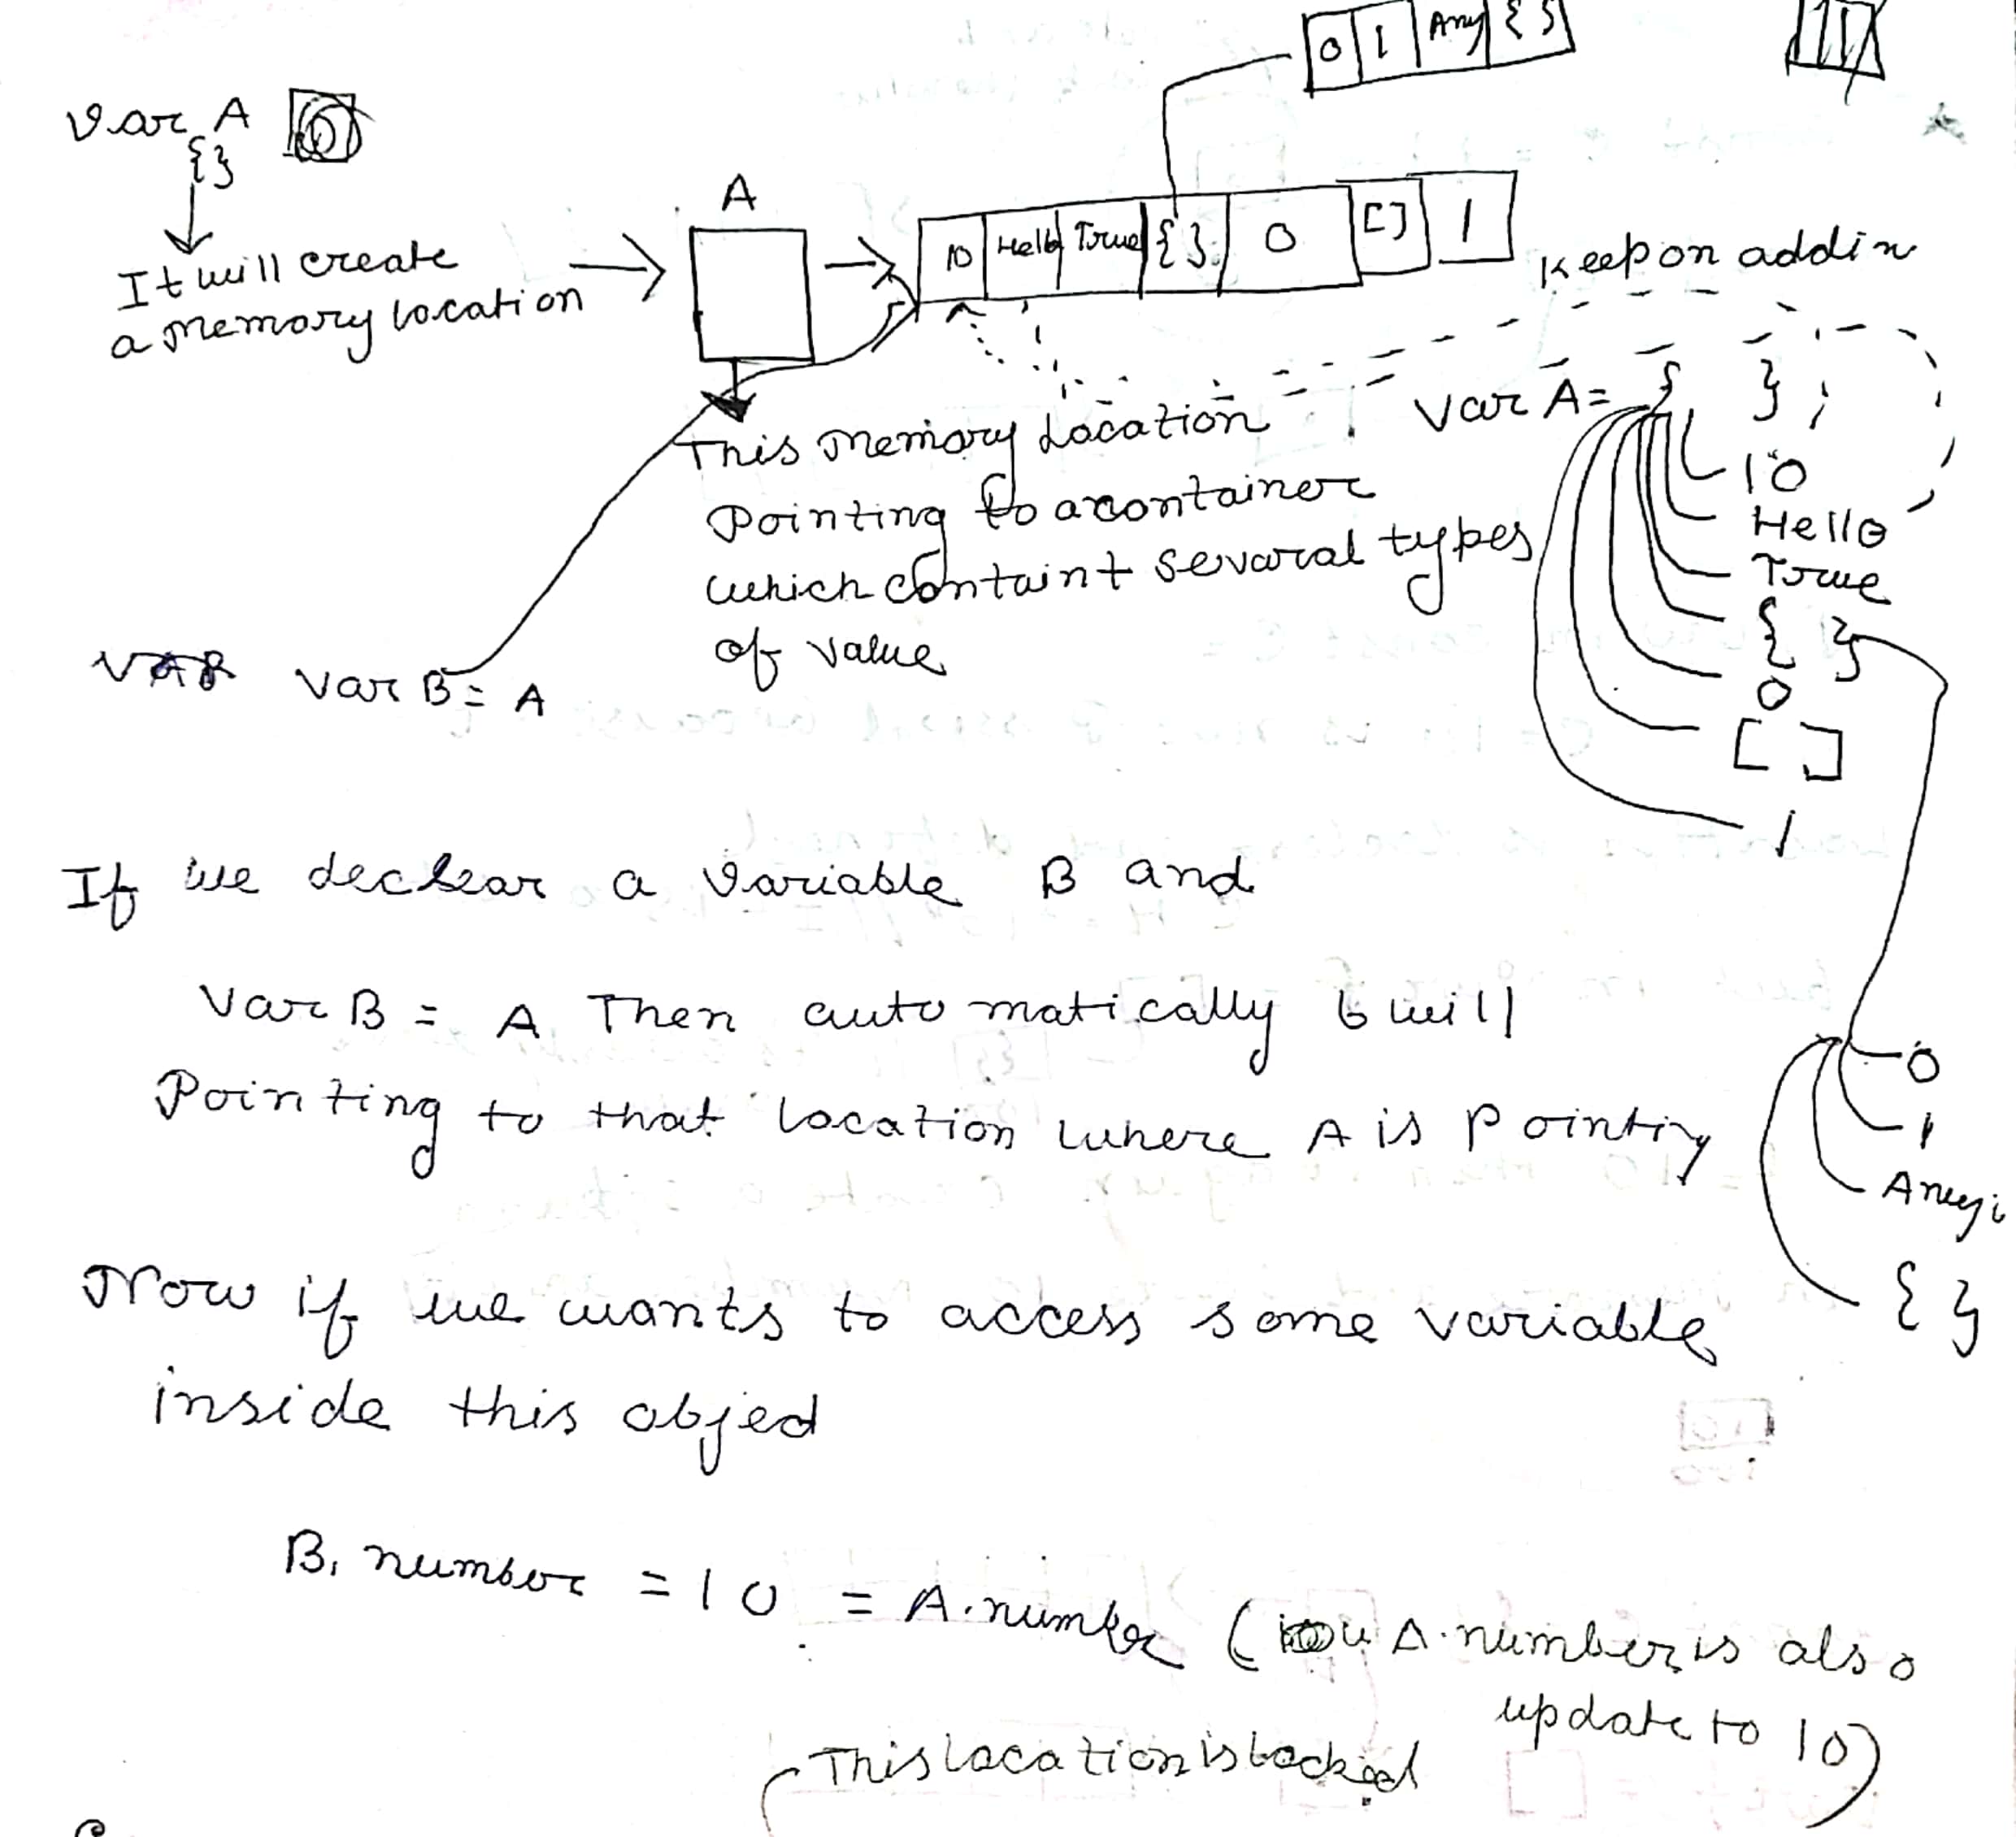 0 1 Any { }
var A
{}
It will create
a memory location
A
10 Hello True { } 0 [] 1
Keep on addin
var A = { };
10
Hello
True
{ }
0
[ ]
1
This memory Location
Pointing to a container
which containt sevaral types
of value
VAR var B = A
If we declear a variable B and
var B = A Then automatically b will
Pointing to that location where A is pointing
0
1
{ }
Now if we wants to access some variable
inside this objed
B. number = 10 = A.number ( A.number is also
update to 10)
This location is locked